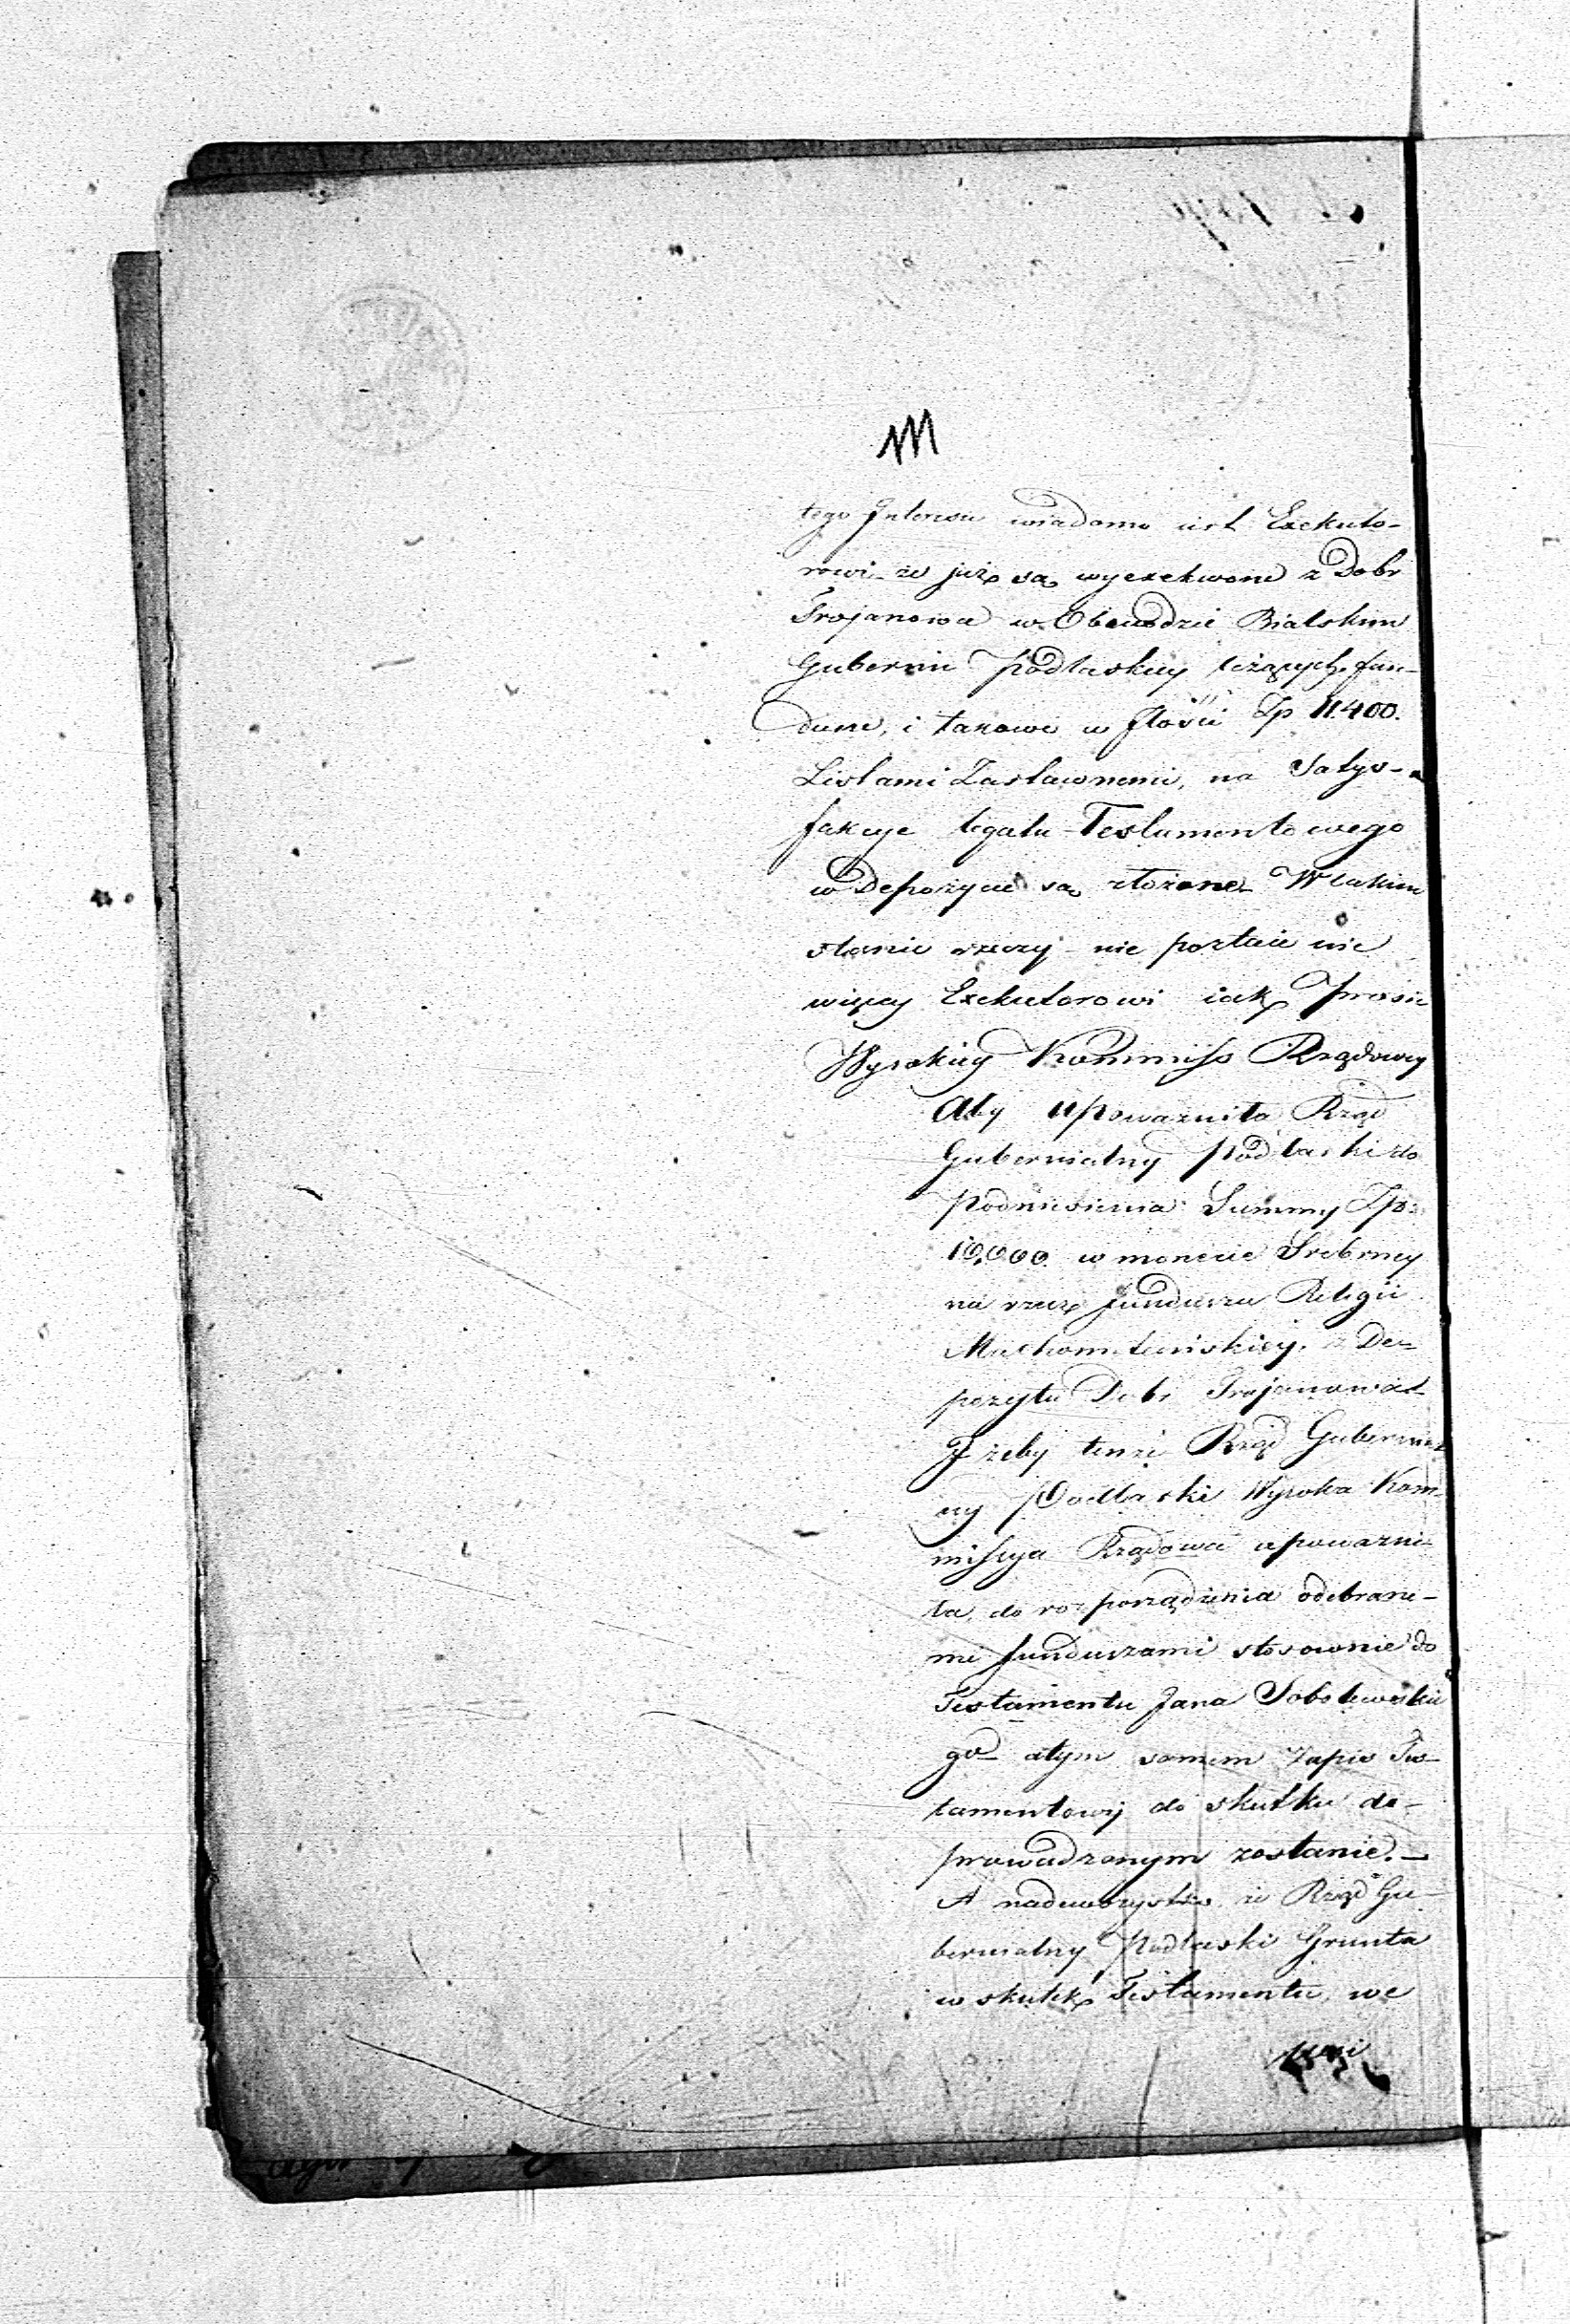 tego Interesu wiadomo iest Exekuto-
rowi że już są wyexekwone z Dobr
Trojanowa w Obwodzie Bialskim
Gubernii Podlaskiey leżących fun-
dusze, i takowe w Ilości Zp 11.400.
Listami Zastawnemi, na Satys-
fakcye legatu Testamentowego
w Depozycie są złożone. W takim
stanie rzeczy nie poztaie nic
więcey Exekutorowi iak prosić
Wysokiey Kommiss Rządowey
Aby upoważniła Rząd
Gubernialny Podlaski do
Podniesienia Summy Zp:
10,000 w monecie Srebrney
na rzecz funduszu Religii
Machometańskiey. z De-
pozytu Dobr Trojanowa
I żeby tenże Rząd Gubernial
ny Podlaski Wysoka Kom-
missya Rządowa upoważni-
ła, do rozporządzenia odebrane-
mi funduszami stosownie do
Testamentu Jana Sobolewskie
go a tym samem Zapis Tes-
tamentowy do skutku do-
prowadzonym zostanie. -
A nadewszystko że Rząd Gu-
bernialny Podlaski Grunta
w skutek Testamentu, we
wsi